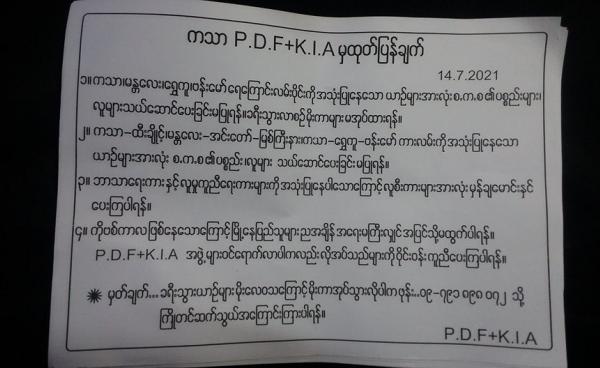 ကသာ P.D.F+K.I.A မှထုတ်ပြန်ချက်
14.7.2021
၁။ကသာ၊မန္တလေး၊ရွှေကူ၊ဗန်းမော် ရေကြောင်းလမ်းပိုင်းကိုအသုံးပြုနေသော ယာဉ်များအားလုံး စ.က.စ၏ပစ္စည်းများ၊
လူများသယ်ဆောင်ပေးခြင်းမပြုရန်။ခရီးသွားလာစဉ်မိုးကာများမအုပ်ထားရန်။
၂။ ကသာ-ထီးချိုင့်၊မန္တလေး-အင်းတော်-မြစ်ကြီးနား၊ကသာ-ရွှေကူ-ဗန်းမော် ကားလမ်းကိုအသုံးပြုနေသော
ယာဉ်များအားလုံး စ.က.စ၏ပစ္စည်း၊လူများ သယ်ဆောင်ပေးခြင်းမပြုရန်။
၃။ ဘာသာရေးကားနှင့်လူမှုကူညီရေးကားများကိုအသုံးပြုနေပါသောကြောင့်လူစီးကားများအားလုံးမှန်ချမောင်းနှင်
ပေးကြပါရန်။
၄။ ကိုဗစ်ကာလဖြစ်နေသောကြောင့်မြို့နေပြည်သူများညအချိန်အရေးမကြီးလျှင်အပြင်သို့မထွက်ပါရန်။
P.D.F+K.I.A အဖွဲ့များဝင်ရောက်လာပါကလည်းလိုအပ်သည်များကိုဝိုင်းဝန်းကူညီပေးကြပါရန်။
✹ မှတ်ချက်...ခရီးသွားယာဉ်များမိုးလေဝသကြောင့်မိုးကာအုပ်သွားလိုပါကဖုန်း..၀၉-၇၉၁ ၈၉၈ ၀၇၂ သို့
ကြိုတင်ဆက်သွယ်အကြောင်းကြားပါရန်။
P.D.F+K.I.A